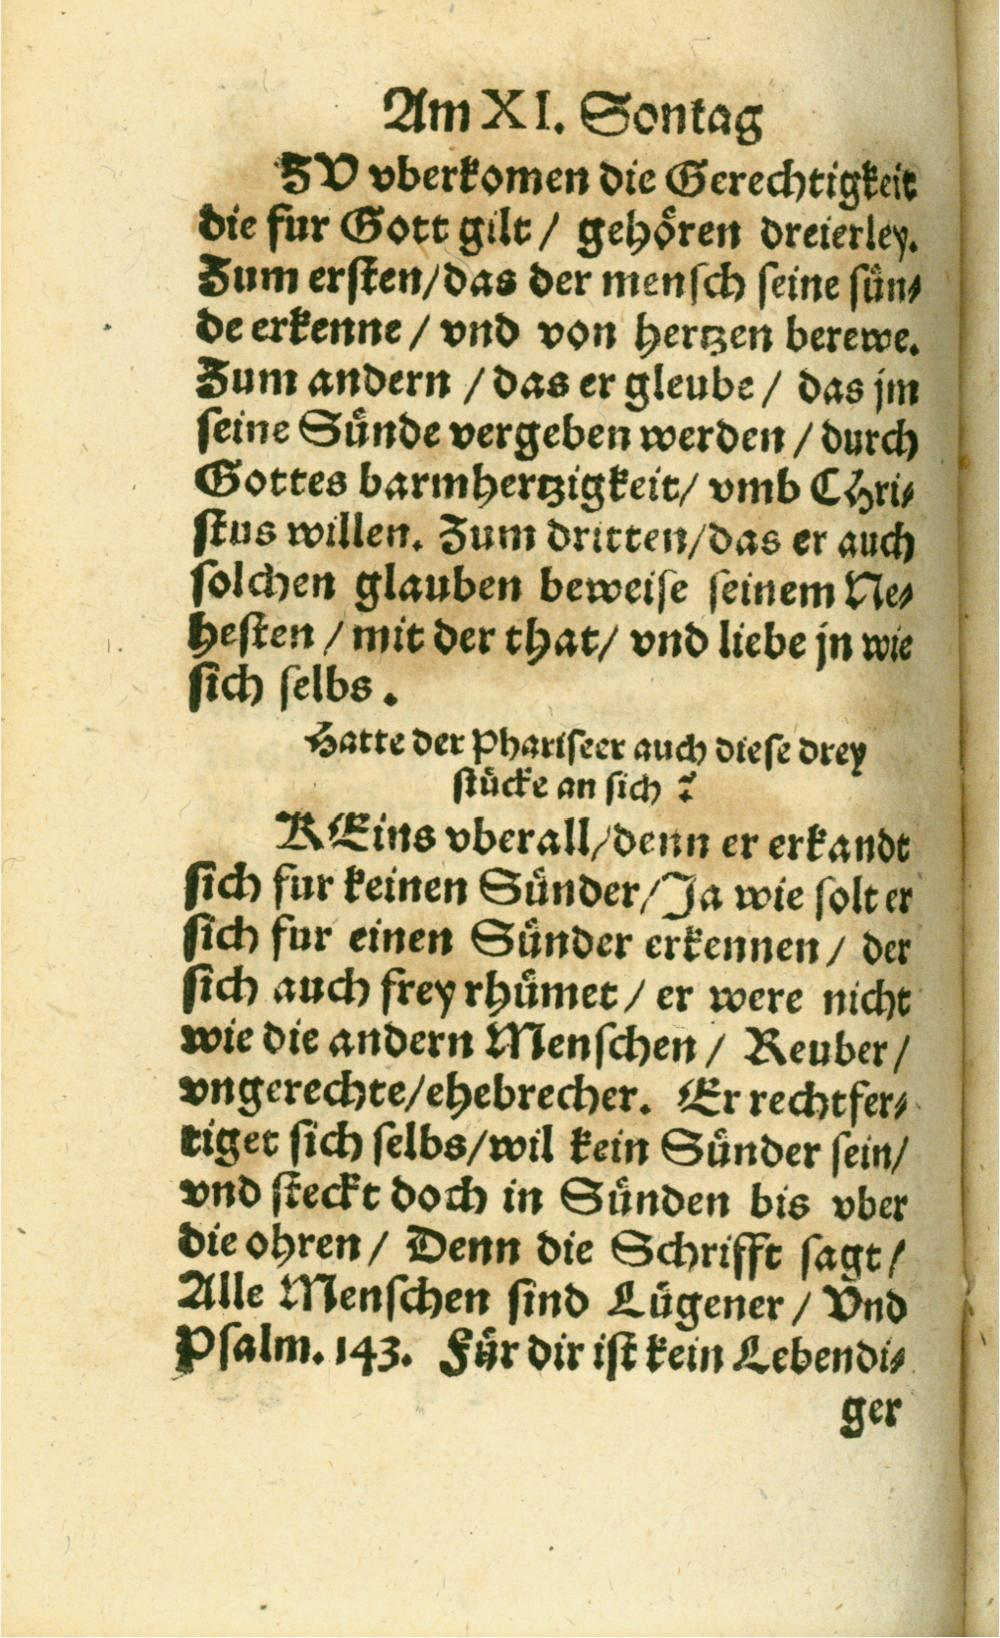 Am XI. Sontag
ZV vberkomen die Gerechtigkeit
die fur Gott gilt / gehoͤren dreierley.
Zum ersten/das der mensch seine suͤn⸗
de erkenne / vnd von hertzen berewe.
Zum andern / das er gleube / das jm
seine Suͤnde vergeben werden / durch
Gottes barmhertzigkeit/ vmb CHri⸗
stus willen. Zum dritten/das er auch
solchen glauben beweise seinem Ne⸗
hesten / mit der that/ vnd liebe jn wie
sich selbs.
Hatte der Phariseer auch diese drey
stuͤcke an sich?
KEins vberall/denn er erkandt
sich fur keinen Suͤnder/Ja wie solt er
sich fur einen Suͤnder erkennen/ der
sich auch frey rhuͤmet / er were nicht
wie die andern Menschen / Reuber /
vngerechte/ehebrecher. Er rechtfer⸗
tiget sich selbs/wil kein Suͤnder sein/
vnd steckt doch in Suͤnden bis vber
die ohren / Denn die Schrifft sagt /
Alle Menschen sind Luͤgener / Vnd
Psalm. 143. Fuͤr dir ist kein Lebendi⸗
ger